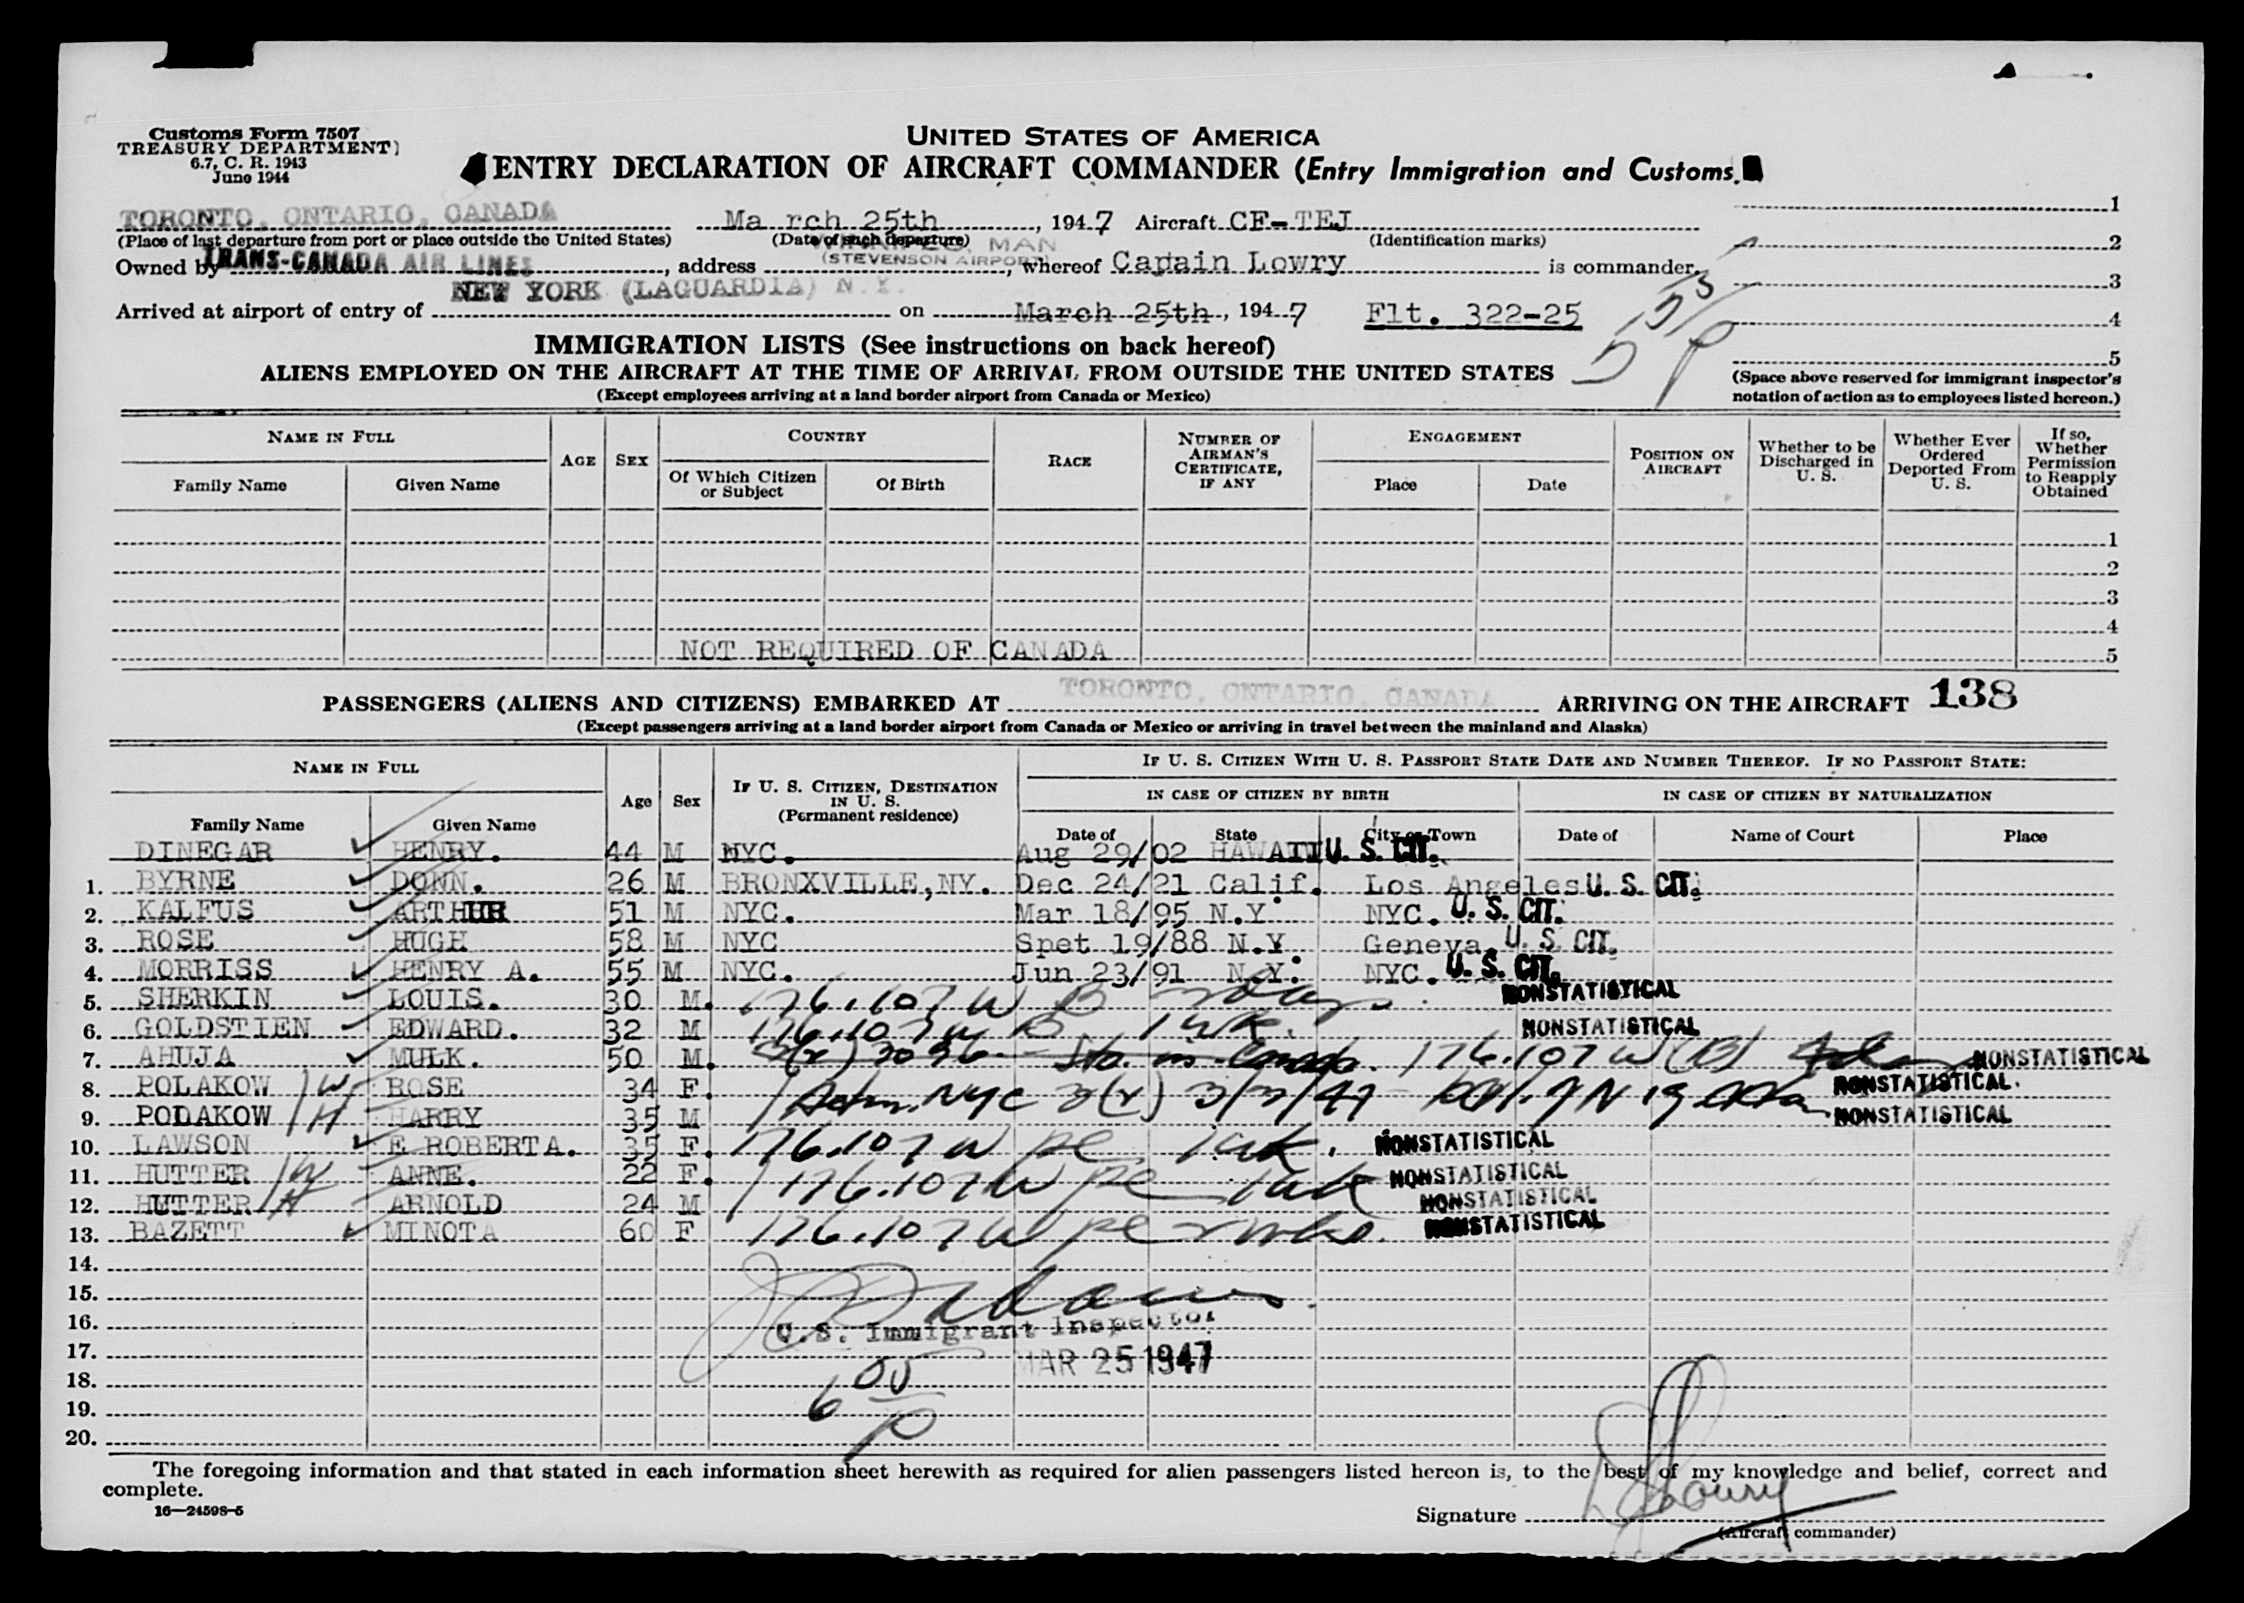 Customs Form 7507
TREASURY DEPARTMENT)
6.7, C. R. 1943
June 1944
UNITED STATES OF AMERICA
ENTRY DECLARATION OF AIRCRAFT COMMANDER (Entry Immigration and Customs.
TORONTO, ONTARIO, CANADA Ma rch 25th, 1947 Aircraft CF-TEJ 1
(Place of last departure from port or place outside the United States) (Date of such departure) (Identification marks) 2
WINNIPEG, MAN
(STEVENSON AIRPORT)
Owned by TRANS-CANADA AIR LINES, address, whereof Captain Lowry is commander. 3
NEW YORK (LAGUARDIA) N.Y.
Arrived at airport of entry of on March 25th, 1947 Flt. 322-25 4
IMMIGRATION LISTS (See instructions on back hereof) 5
ALIENS EMPLOYED ON THE AIRCRAFT AT THE TIME OF ARRIVAL FROM OUTSIDE THE UNITED STATES
(Except employees arriving at a land border airport from Canada or Mexico)
(Space above reserved for immigrant inspector's notation of action as to employees listed hereon.)
NAME IN FULL AGE SEX COUNTRY RACE NUMBER OF AIRMAN'S CERTIFICATE, IF ANY ENGAGEMENT POSITION ON AIRCRAFT Whether to be Discharged in U. S. Whether Ever Ordered Deported From U. S. If so, Whether Permission to Reapply Obtained
Family Name Given Name Of Which Citizen or Subject Of Birth Place Date
1
2
3
4
NOT REQUIRED OF CANADA 5
PASSENGERS (ALIENS AND CITIZENS) EMBARKED AT TORONTO, ONTARIO, CANADA ARRIVING ON THE AIRCRAFT 138
(Except passengers arriving at a land border airport from Canada or Mexico or arriving in travel between the mainland and Alaska)
NAME IN FULL Age Sex IF U. S. CITIZEN, DESTINATION IN U. S. (Permanent residence) IF U. S. CITIZEN WITH U. S. PASSPORT STATE DATE AND NUMBER THEREOF. IF NO PASSPORT STATE:
IN CASE OF CITIZEN BY BIRTH IN CASE OF CITIZEN BY NATURALIZATION
Family Name Given Name Date of State City or Town Date of Name of Court Place
DINEGAR HENRY. 44 M NYC. Aug 29/02 HAWAII U. S. CIT.
1. BYRNE DONN. 26 M BRONXVILLE, NY. Dec 24/21 Calif. Los Angeles U. S. CIT.
2. KALFUS ARTHUR 51 M NYC. Mar 18/95 N.Y. NYC. U. S. CIT.
3. ROSE HUGH 58 M NYC Spet 19/88 N.Y Geneva. U. S. CIT.
4. MORRISS HENRY A. 55 M NYC. Jun 23/91 N.Y. NYC. U. S. CIT.
5. SHERKIN LOUIS. 30 M. 176.107 W B days NONSTATISTICAL
6. GOLDSTIEN EDWARD. 32 M 176.107 W B 1 wk. NONSTATISTICAL
7. AHUJA MULK. 50 M. Canada. 176.107 W (B) NONSTATISTICAL
8. POLAKOW W ROSE 34 F. Adm. NYC 3(r) 3/3/47 NONSTATISTICAL.
9. POLAKOW H HARRY 35 M NONSTATISTICAL
10. LAWSON E ROBERTA. 35 F. 176.107 W pe 1 wk. NONSTATISTICAL
11. HUTTER W ANNE. 22 F. 176.107 W pe 1 wk NONSTATISTICAL
12. HUTTER H ARNOLD 24 M NONSTATISTICAL
13. BAZETT MINOTA 60 F 176.107 W pe wks. NONSTATISTICAL
14.
15.
16. U. S. Immigrant Inspector
17. MAR 25 1947
18.
19.
20.
The foregoing information and that stated in each information sheet herewith as required for alien passengers listed hereon is, to the best of my knowledge and belief, correct and
complete.
16—24598-5
Signature Lowry
(Aircraft commander)